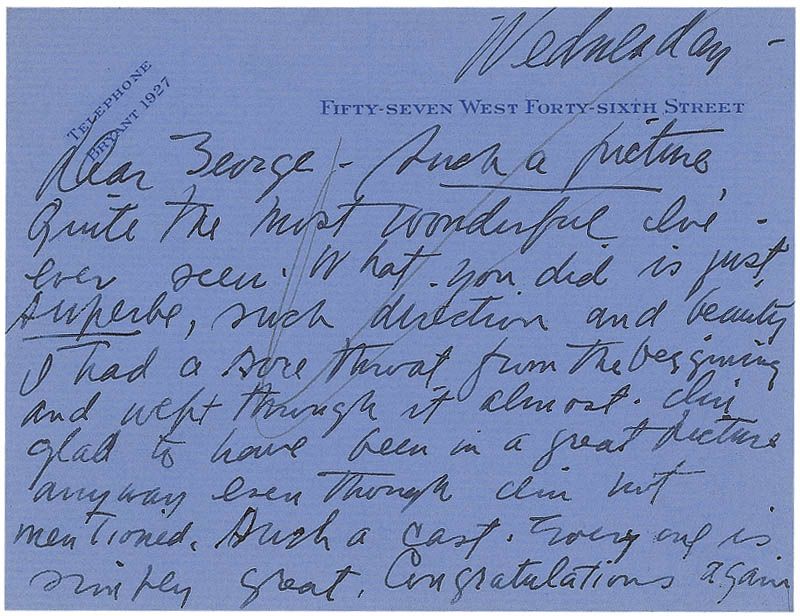 Wednesday -
TELEPHONE
BRYANT 1927
FIFTY-SEVEN WEST FORTY-SIXTH STREET
Dear George - Such a picture,
Quite the most wonderful I've -
ever seen. What you did is just
Superbe, such direction and beauty
I had a sore throat from the beginning
and wept through it almost. I'm
glad to have been in a great picture
anyway even though I'm not
mentioned. Such a cast. Every one is
simply great. Congratulations again